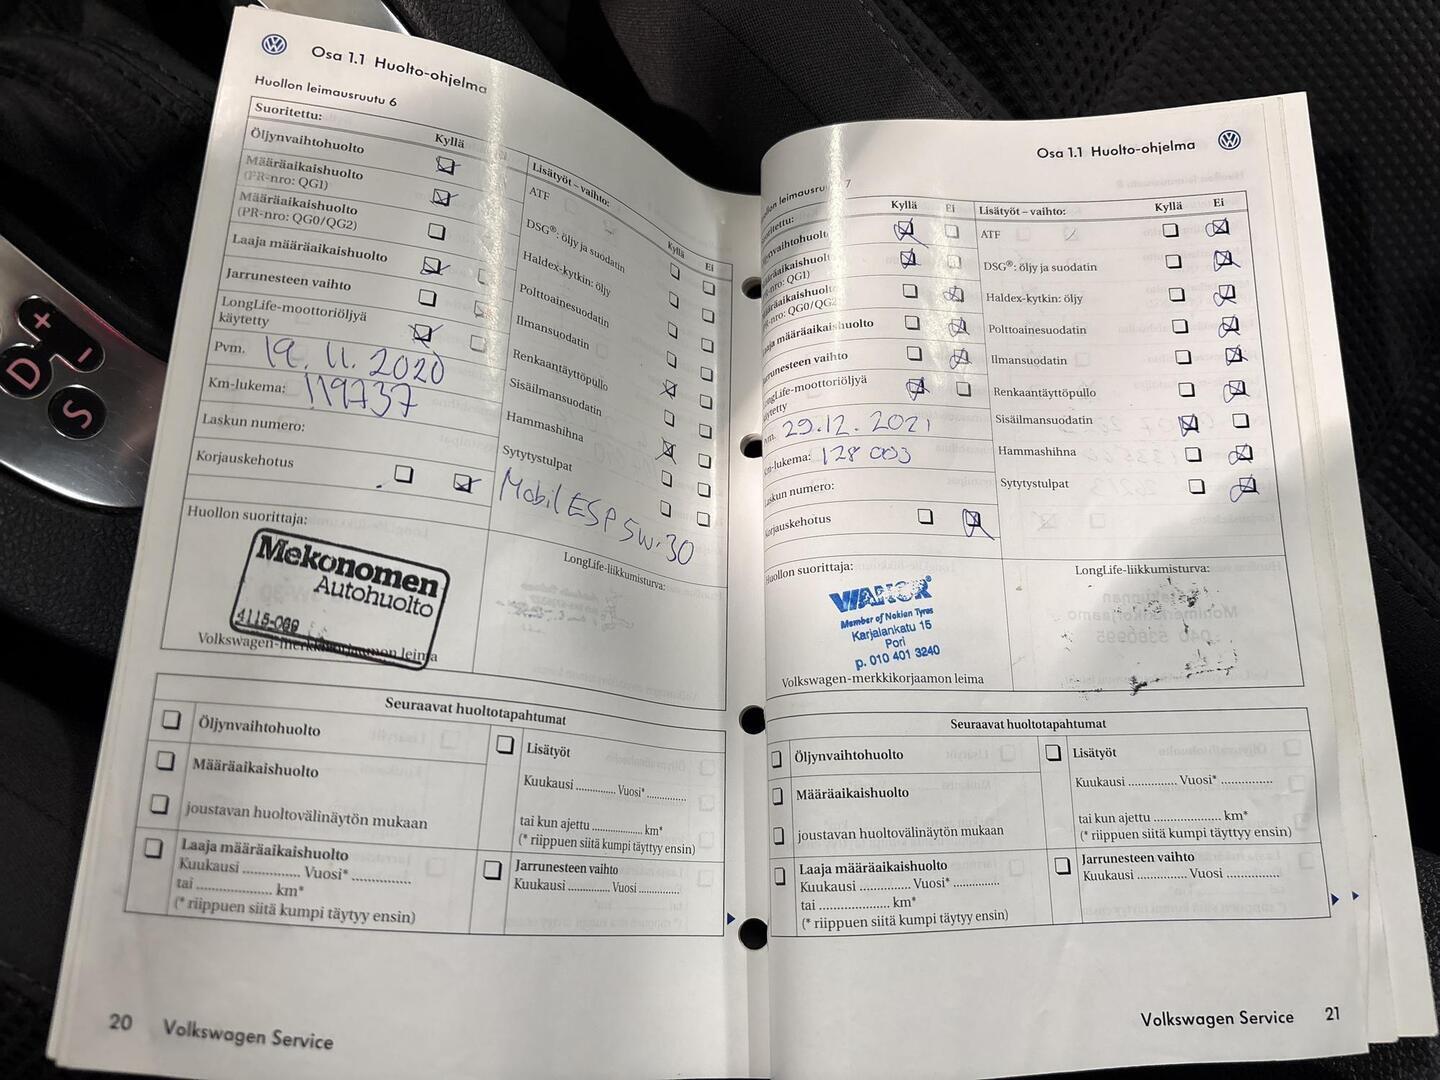 Osa 1.1 Huolto-ohjelma
Huollon leimausruutu 6
Suoritettu:
Kyllä
Öljynvaihtohuolto
Määräaikaishuolto
(PR-nro: QG1)
Määräaikaishuolto
(PR-nro: QG0/QG2)
Laaja määräaikaishuolto
Jarrunesteen vaihto
LongLife-moottoriöljyä
käytetty
Pvm. 19.11.2020
Km-lukema: 119737
Laskun numero:
Korjauskehotus
Lisätyöt – vaihto:
Kyllä Ei
ATF
DSG®: öljy ja suodatin
Haldex-kytkin: öljy
Polttoainesuodatin
Ilmansuodatin
Renkaantäyttöpullo
Sisäilmansuodatin
Hammashihna
Sytytystulpat
Mobil ESP 5w-30
Huollon suorittaja:
Mekonomen
Autohuolto
4115-069
Volkswagen-merkkikorjaamon leima
LongLife-liikkumisturva:
Seuraavat huoltotapahtumat
Öljynvaihtohuolto
Määräaikaishuolto
joustavan huoltovälinäytön mukaan
Laaja määräaikaishuolto
Kuukausi ............... Vuosi* ...............
tai .................... km*
(* riippuen siitä kumpi täytyy ensin)
Lisätyöt
Kuukausi ............... Vuosi* ...............
tai kun ajettu .................... km*
(* riippuen siitä kumpi täytyy ensin)
Jarrunesteen vaihto
Kuukausi ............... Vuosi ...............
20 Volkswagen Service
Osa 1.1 Huolto-ohjelma
leimausru 7
Kyllä Ei
LongLife-moottoriöljyä
käytetty
29.12.2021
Km-lukema: 128 003
Laskun numero:
Korjauskehotus
Lisätyöt – vaihto: Kyllä Ei
ATF
DSG®: öljy ja suodatin
Haldex-kytkin: öljy
Polttoainesuodatin
Ilmansuodatin
Renkaantäyttöpullo
Sisäilmansuodatin
Hammashihna
Sytytystulpat
Huollon suorittaja:
VIANOR
Member of Nokian Tyres
Karjalankatu 15
Pori
p. 010 401 3240
Volkswagen-merkkikorjaamon leima
LongLife-liikkumisturva:
Seuraavat huoltotapahtumat
Öljynvaihtohuolto
Määräaikaishuolto
joustavan huoltovälinäytön mukaan
Laaja määräaikaishuolto
Kuukausi ............... Vuosi* ...............
tai .................... km*
(* riippuen siitä kumpi täytyy ensin)
Lisätyöt
Kuukausi ............... Vuosi* ...............
tai kun ajettu .................... km*
(* riippuen siitä kumpi täytyy ensin)
Jarrunesteen vaihto
Kuukausi ............... Vuosi ...............
Volkswagen Service 21
+
-
D
S